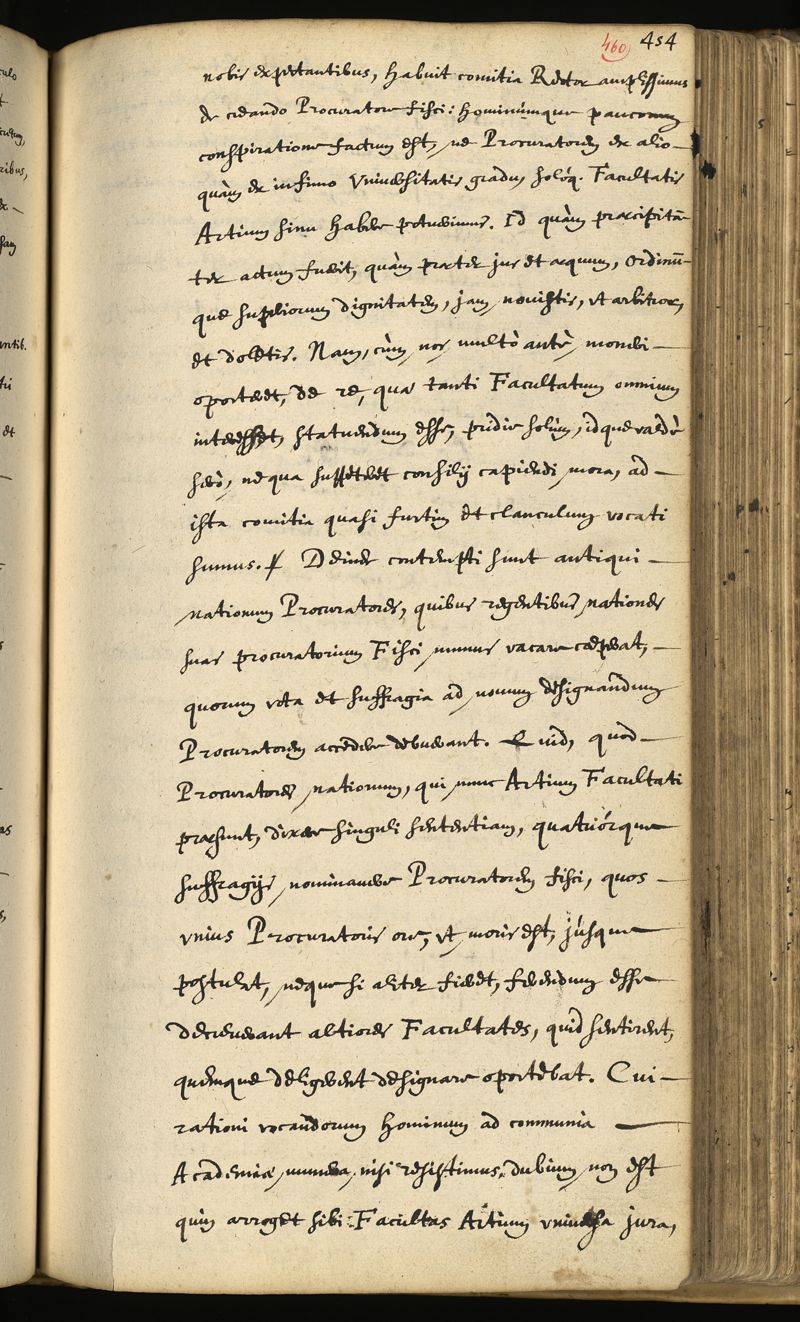 460 454
nobis expectantibus, habuit comitia Rector amplissimus
de creando Procuratore fisci: hominúmque paucorum
conspiratione factum est, ne Procuratorem ex alio
quàm ex infimo Vniuersitatis gradu, soloq. Facultatis
Artium sinu habere potuerimus. Id quàm præcipitā
ter actum fuerit, quàm præter jus et æquum, ordinū
que superiorum dignitatem, jam novistis, vt arbitror,
et doletis. Nam, cùm nos multò antè moneri
oporteret, de re, quæ tanti Facultatum omnium
interesset, statuendum esse, pridie solùm, idque valdè
serò, ne qua suppeteret consilij capiendi mora, ad
ista comitia quasi furtim et clanculum vocati
sumus. Deinde contempti sunt antiqui
nationum Procuratores, quibus regentibus nationes
suas procuratorium Fisci munus vacare cœperat,
quorum vota et suffragia ad novum designandum
Procuratorem accedere debuerant. Quid, quòd
Procuratores nationum, qui nunc Artium Facultati
præsunt, dixere singuli sententiam, quatuórque
suffragijs nominavere Procuratorem fisci, quos
vnius Procuratoris ore, vt moris est, jusque
postulat, neque si aliter fieret, ferendum esse
decreverant altiores Facultates, quid sentirent,
quémque deligerent designare oportebat. Cui
rationi vocandorum hominum ad communia
Academiæ munera, nisi resistimus, dubium non est
quin arroget sibi Facultas Artium vniversa jura,